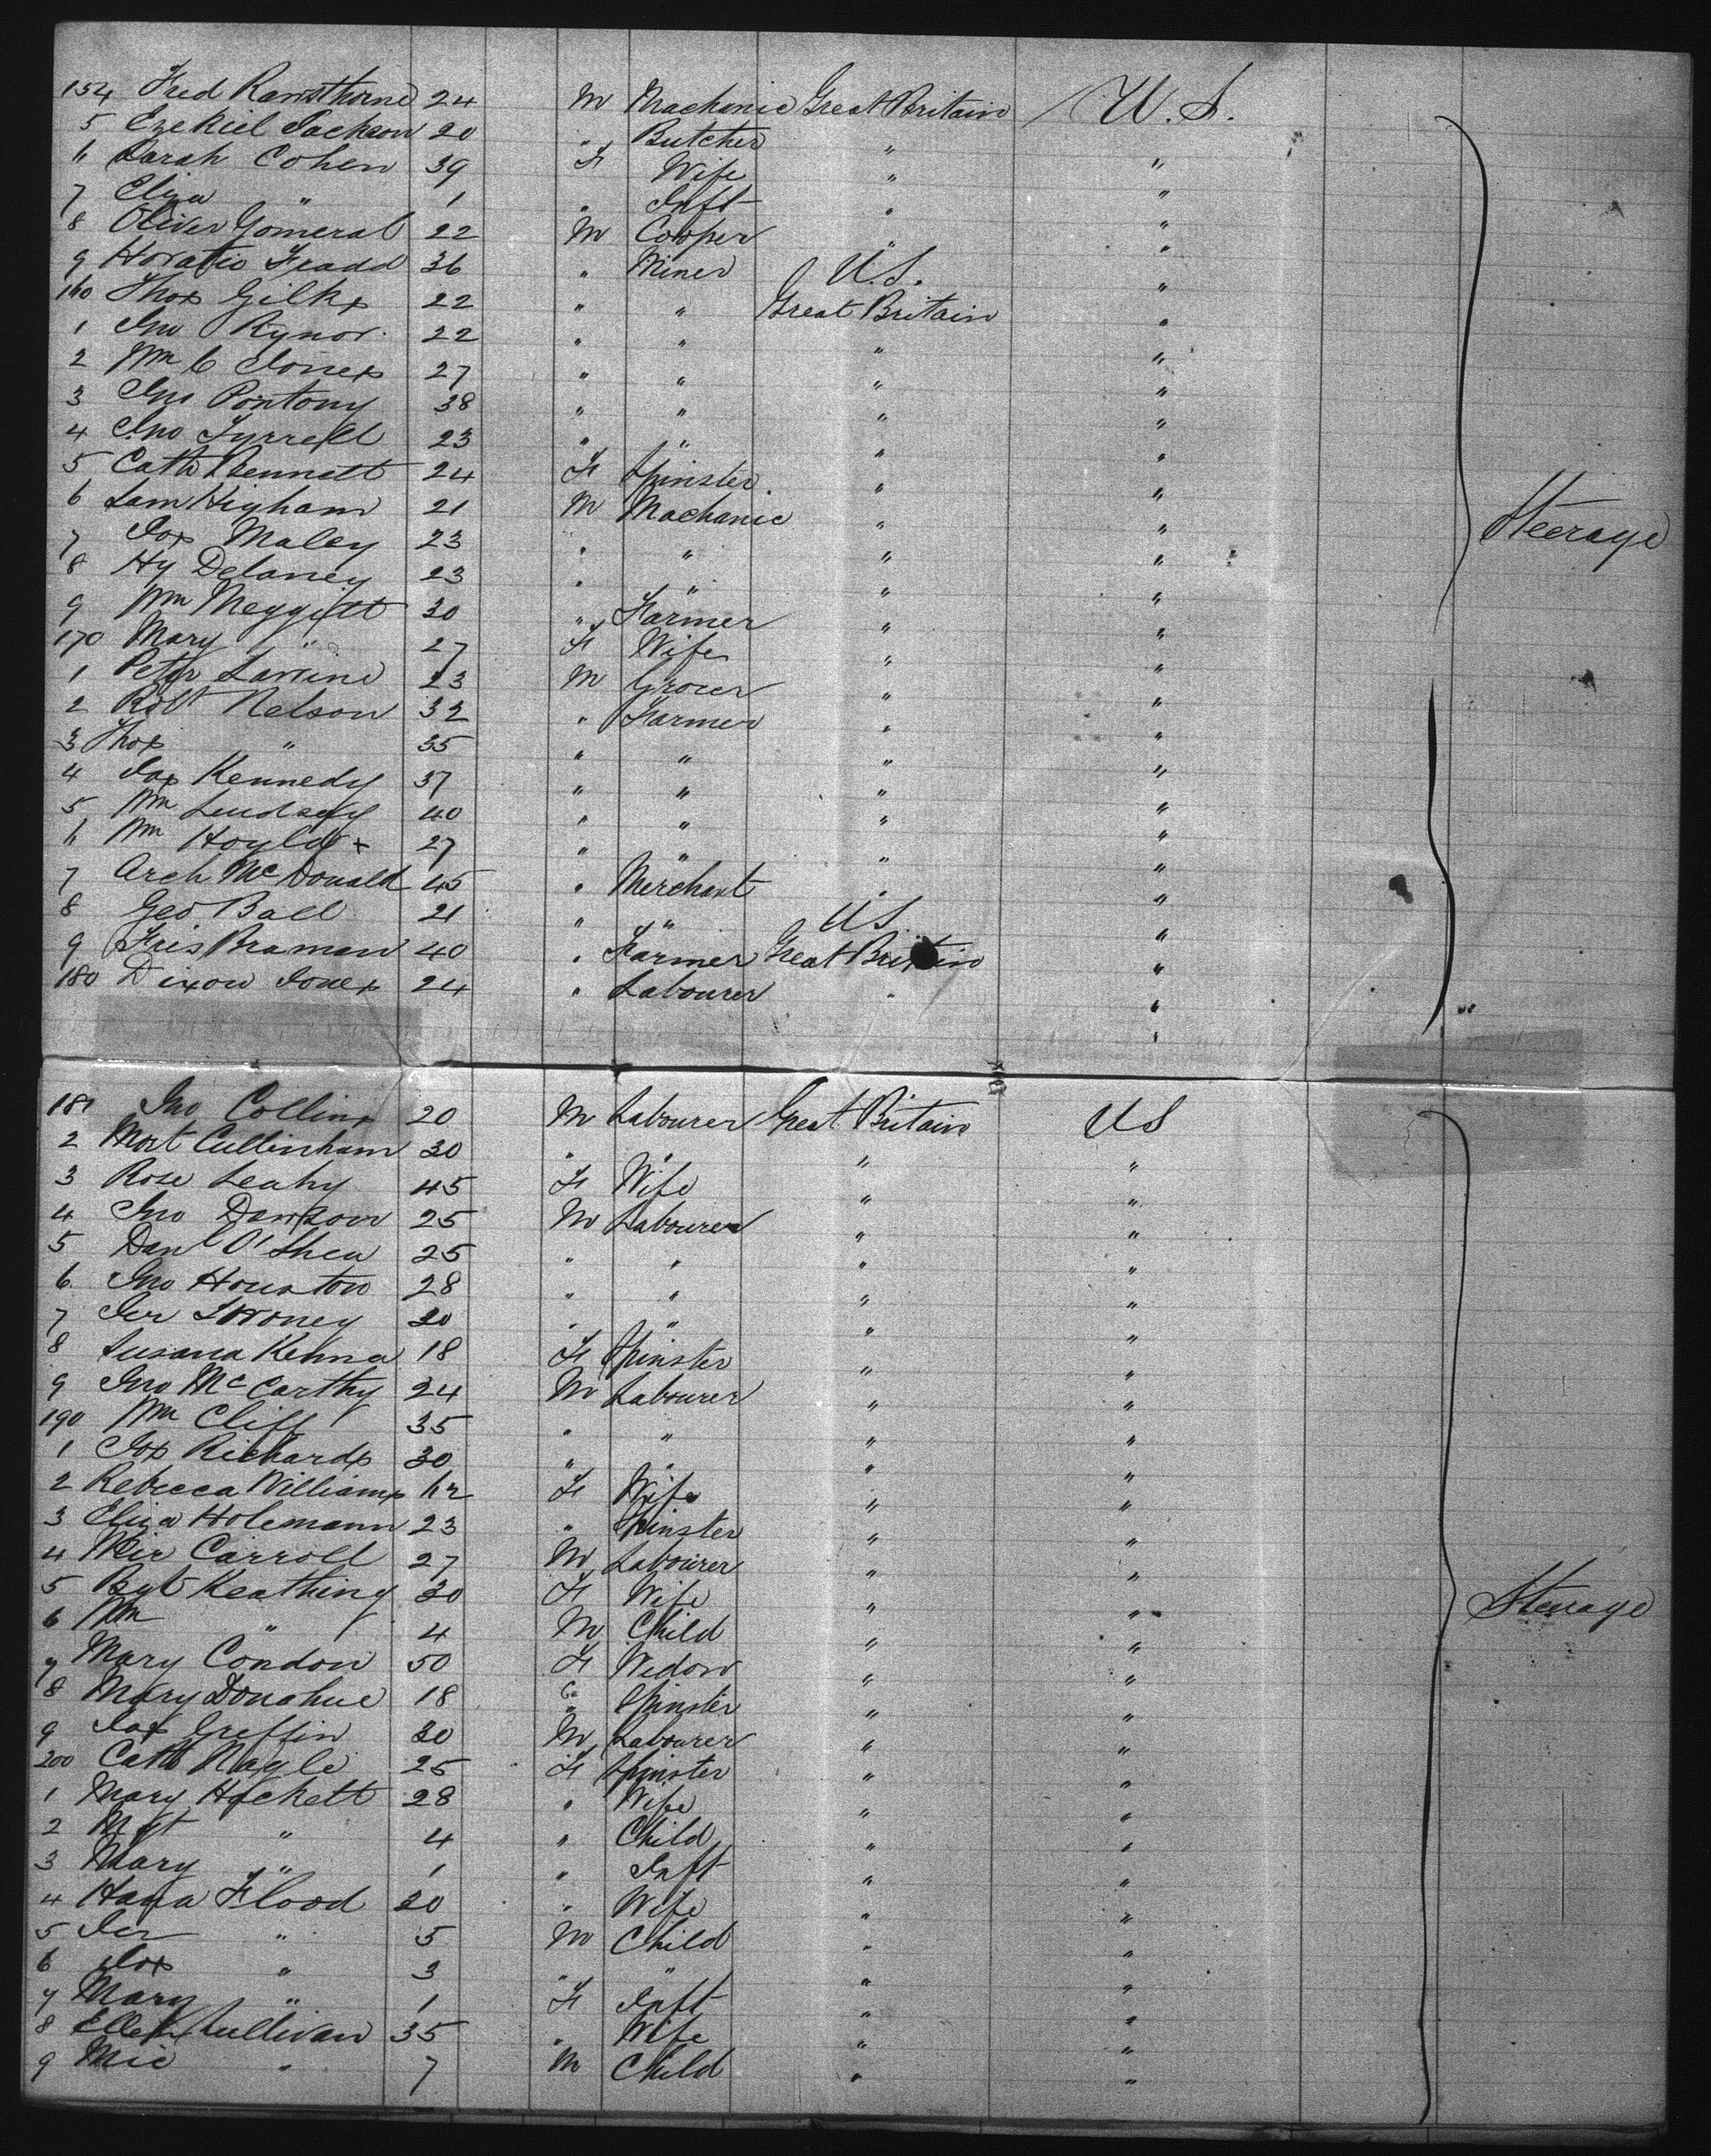 154 Fred Rawsthorne 24 M Mechanic Great Britain U.S.
5 Ezekiel Jackson 20 " Butcher " "
6 Sarah Cohen 39 F Wife " "
7 Eliza " 1 " Inft " "
8 Oliver Gomeral 22 M Cooper " "
9 Horatio Fradd 36 " Miner U.S. "
160 Thos Gilks 22 " " Great Britain "
1 Jno Rynor 22 " " " "
2 Wm C Jones 27 " " " "
3 Jno Pontony 38 " " " "
4 Jno Tyrrell 23 " " " "
5 Cath Bennett 24 F Spinster " "
6 Sam Higham 21 M Mechanic " "
Steerage
7 Jos Maley 23 " " " "
8 Hy Delaney 23 " " " "
9 Wm Meggitt 30 " Farmer " "
170 Mary " 27 F Wife " "
1 Peter 23 M Grocer " "
2 Robt Nelson 32 " Farmer " "
3 Thos " 35 " " " "
4 Jas Kennedy 37 " " " "
5 Wm Lindsey 40 " " " "
6 Wm Hoyle 27 " " " "
7 Arch McDonald 45 " Merchant " "
8 Geo Ball 21 " " U.S. "
9 Fris Braman 40 " Farmer Great Britain "
180 Dixon Jones 24 " Labourer " "
181 Jno Collins 20 M Labourer Great Britain US
2 Mort Cullinham 30 " " " "
3 Rose Leahy 45 F Wife " "
4 Jno Dawson 25 M Labourer " "
5 Danl O'Shea 25 " " " "
6 Jno Houston 28 " " " "
7 Jer 20 " " " "
8 Susana Kenna 18 F Spinster " "
9 Jno McCarthy 24 M Labourer " "
190 Wm Cliff 35 " " " "
1 Jos Richards 30 " " " "
2 Rebecca Williams 62 F Wife " "
3 Eliza Holemann 23 " Spinster " "
4 Carroll 27 M Labourer " "
5 Bgt Keathing 30 F Wife " "
Steerage
6 Wm " 4 M Child " "
7 Mary Condon 50 F Widow " "
8 Mary Donahue 18 " Spinster " "
9 Jas Griffin 30 M Labourer " "
200 Cath Nagle 25 F Spinster " "
1 Mary Hackett 28 " Wife " "
2 Mgt " 4 " Child " "
3 Mary " 1 " Inft " "
4 Hana Flood 20 " Wife " "
5 Jer " 5 M Child " "
6 Jos " 3 " " " "
7 Mary " 1 F Inft " "
8 Ellen Sullivan 35 " Wife " "
9 Mic " 7 M Child " "